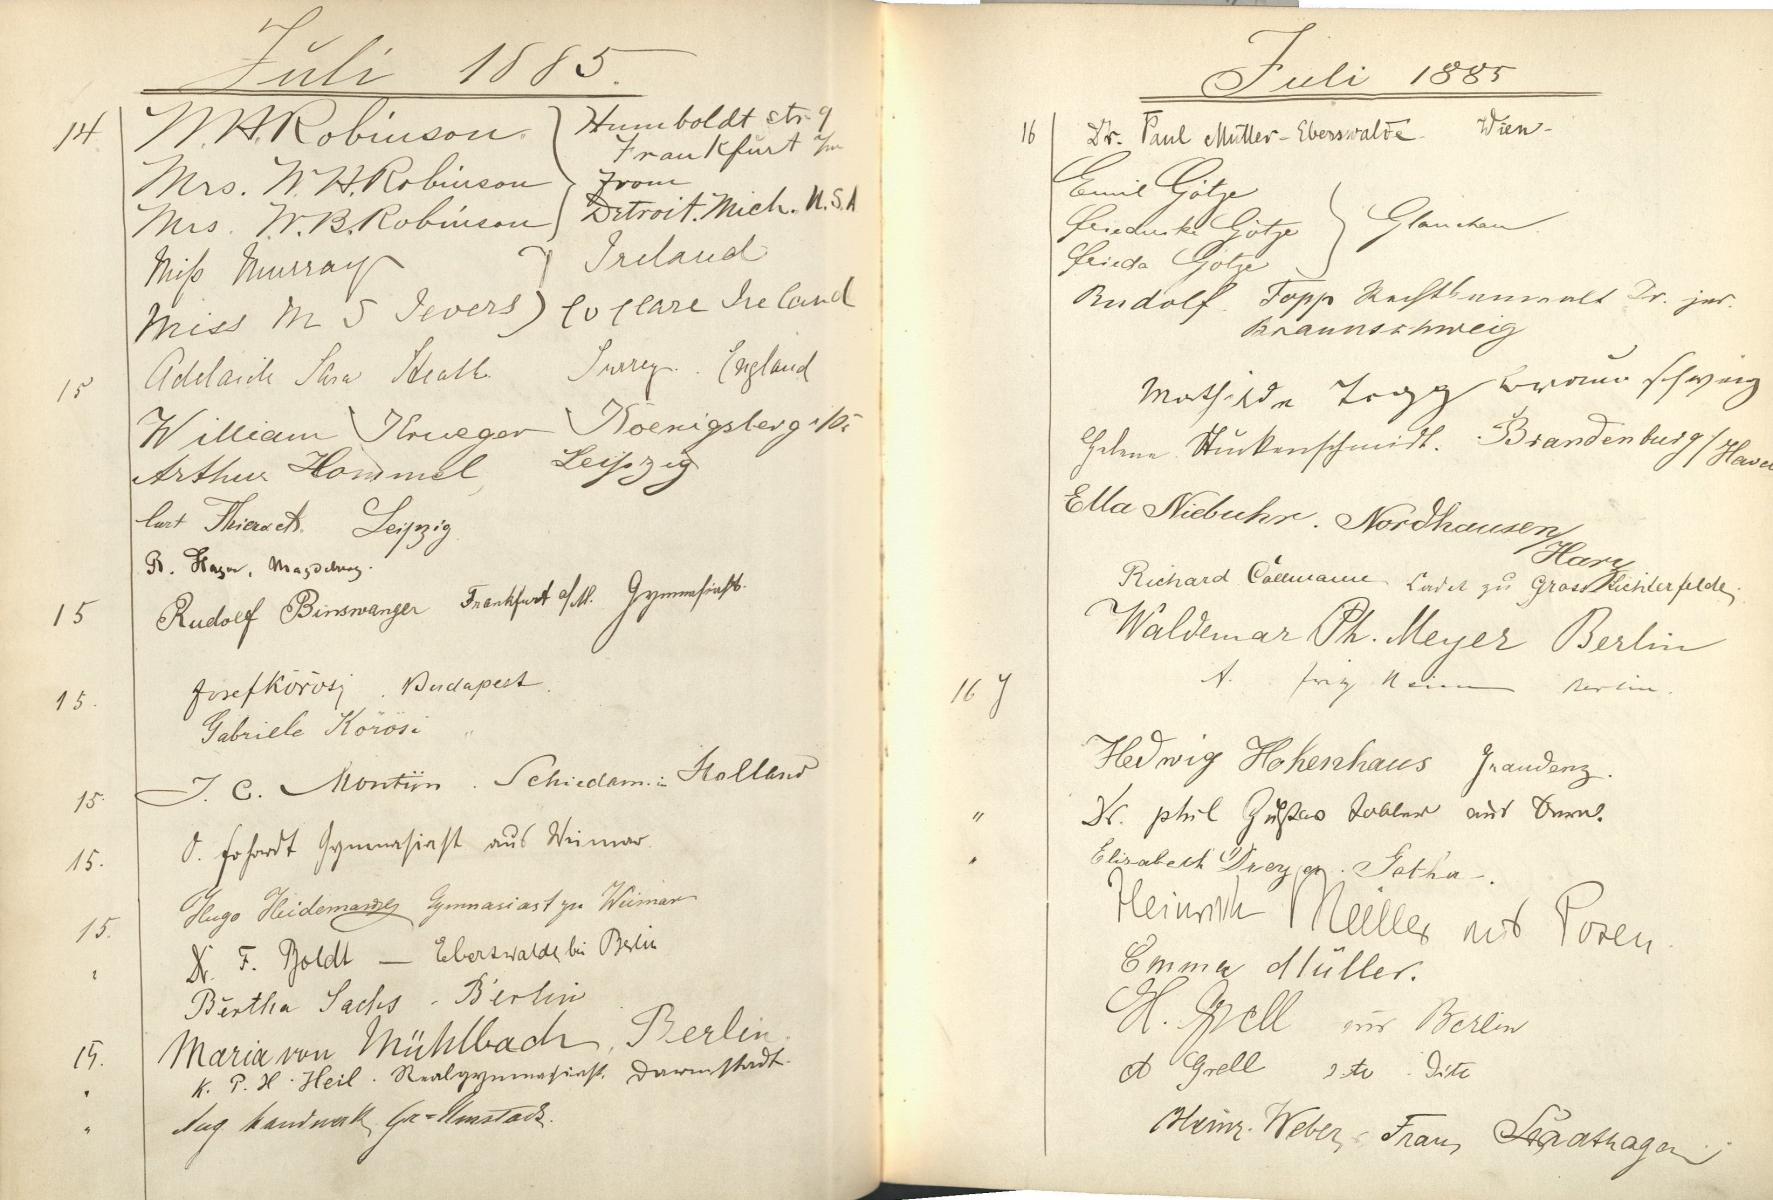 Juli 1885.
14 W. H. Robinson Humboldt str. 9
Frankfurt a/m
Mrs. W. H. Robinson from
Mrs. W. B. Robinson Detroit. Mich. U.S.A
Miß Murray Ireland
Miss M S Ievers Co Clare Ireland
15 Adelaide Sara Heath Surrey. England
William Krueger Koenigsberg i/Pr
Arthur Hommel, Leipzig
Curt Leipzig
R. Hagen, Magdeburg.
15 Rudolf Binswanger Frankfurt a/M. Gymnasiast.
15. Josef Körösi, Budapest.
Gabriele Körösi "
15. J. C. Montijn. Schiedam. in Holland
15. O. Gymnasiast aus Weimar.
15. Hugo Gymnasiast zu Weimar
" Dr. F. Boldt — Eberswalde bei Berlin
Bertha Sachs - Berlin
15. Maria von Mühlbach, Berlin.
" K. P. H. Heil. Realgymnasiast. Darmstadt.
" Aug Handwerk, Gr=Umstadt.
Juli 1885
16 Dr. Paul Müller-Eberswalde. Wien-
Emil Götze
Götze Glauchau
Frieda Götze
Rudolf Topp Rechtsanwalt Dr. jur.
Braunschweig
Mathilde Topp Braunschweig
Helene Huckenschmidt. Brandenburg/Havel
Ella Niebuhr. Nordhausen/
Harz
Richard Cadet zu Gross Lichterfelde,
Waldemar Ph. Meyer Berlin
16 J A. Berlin.
Hedwig Hohenhaus Graudenz.
" Dr. phil Gustav Tobler aus Bern.
" Elisabeth Gotha-.
Heinrich Müller aus Posen.
Emma Müller.
H. Grell aus Berlin
A Grell dito dito
Heinr. Weber, Franz